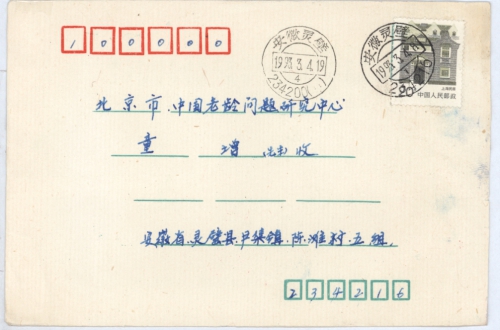 100000
安徽灵璧
1993.3.4.19
4
234200(1)
安徽灵璧
1993.3.4.19
上海民居
中国人民邮政
北京市.中国老龄问题研究中心
童 增 先生 收
安徽省.灵璧县.尹集镇.陈滩村.五组.
234216